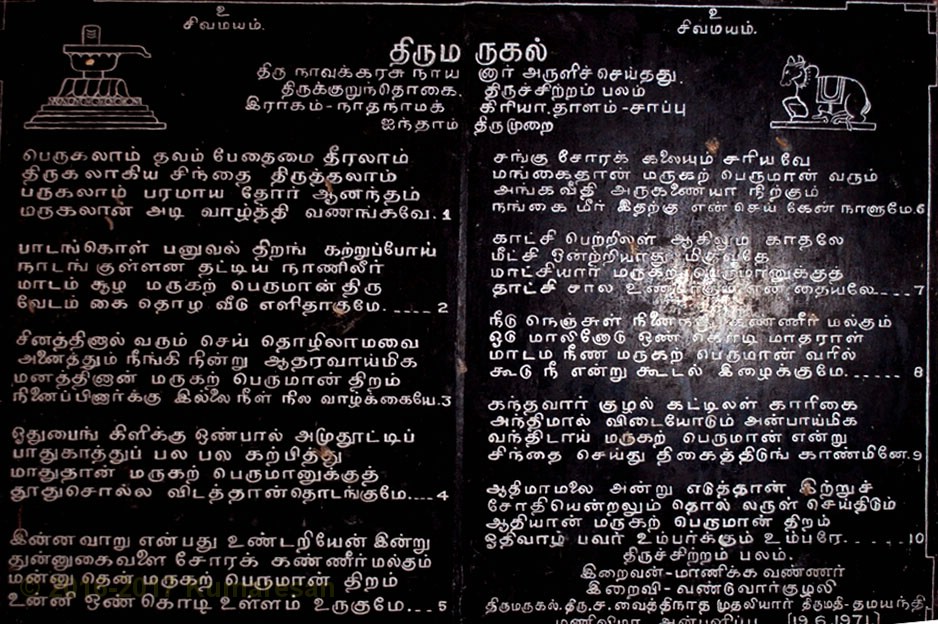 உ
சிவமயம்.
உ
சிவமயம்.
திரும ருகல்
திரு நாவுக்கரசு நாய னார் அருளிச் செய்தது.
திருக்குறுந்தொகை. திருச்சிற்றம் பலம்
இராகம்-நாதநாமக் கிரியா. தாளம் -சாப்பு
ஐந்தாம் திருமுறை
பெருகலாம் தவம் பேதைமை தீரலாம்
திருகலாகிய சிந்தை திருத்தலாம்
பருகலாம் பரமாய தோர் ஆனந்தம்
மருகலான் அடி வாழ்த்தி வணங்கவே. 1
பாடங்கொள் பனுவல் திறங் கற்றுப்போய்
நாடங் குள்ளன தட்டிய நாணிலீர்
மாடம் சூழ மருகற் பெருமான் திரு
வேடம் கை தொழ வீடு எளிதாகுமே. ---- 2
சினத்தினால் வரும் செய் தொழிலாமவை
அனைத்தும் நீங்கி நின்று ஆதரவாய்மிக
மனத்தினான் மருகற் பெருமான் திறம்
நினைப்பினார்க்கு இல்லை நீள் நில வாழ்க்கையே. 3
ஓதுபைங் கிளிக்கு ஒண்பால் அமுதூட்டிப்
பாதுகாத்துப் பல பல கற்பித்து
மாதுதான் மருகற் பெருமானுக்குத்
தூதுசொல்ல விடத்தான்தொடங்குமே.... 4
இன்னவாறு என்பது உண்டறியேன் இன்று
துன்னுகைவளை சோரக் கண்ணீர் மல்கும்
மன்னுதென் மருகற் பெருமான் திறம்
உன்னி ஒண்கொடி உள்ளம் உருகுமே... 5
சங்கு சோரக் கலையும் சரிய வே
மங்கைதான் மருகற் பெருமான் வரும்
அங்கவீதி அருகணையா நிற்கும்
நங்கை மீர் இதற்கு என் செய் கேன் நாளுமே. 6
காட்சி பெற்றிலள் ஆகிலும் காதலே
மீட்சி ஒன்றறியாது மிகுவதே
மாட்சியார் மருகற் பெருமானுக்குத்
தாட்சி சால தையலே.... 7
நீடு நெஞ்சுள் கண்ணீர் மல்கும்
ஓடு மாலினோடு ஒண் கொடி மாதராள்
மாடம நீண மருகற் பெருமான் வரில்
கூடு நீ என்று கூடல் இழைக்குமே....... 8
கந்தவார் குழல் கட்டிலள் காரிகை
அந்திமால் விடையோடும் அன்பாய்மிக
வந்திடாய் மருகற் பெருமான் என்று
சிந்தை செய்து திகைத்திடுங் காண்மினே. 9
ஆதிமாமலை அன்று எடுத்தான் இற்றுச்
சோதியென்றலும் தொல் லருள் செய்திடும்
ஆதியான் மருகற் பெருமான் திறம்
ஓதிவாழ் பவர் உம்பர்க்கும் உம்பரே. ..... 10
திருச்சிற்றம் பலம்.
இறைவன்-மாணிக்க வண்ணர்
இறைவி-வண்டுவார்குழலி
திருமருகல். திரு. ச. வைத்திநாத முதலியார் திருமதி-தமயந்தி
அன்பளிப்பு [19.6.1971.]